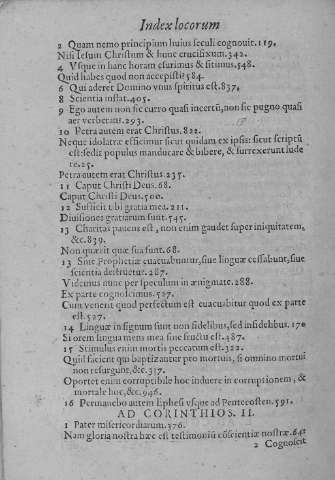 Index locorum
2 Quam nemo principium huius seculi cognouit.119.
Nisi Iesum Christum & hunc crucifixum.342.
4 Vsque in hanc horam esurimus & sitimus.548.
Quid habes quod non accepisti?584.
6 Qui adæret Domino vnus spiritus est.837.
8 Scientia inflat.405.
9 Ego autem non sic curro quasi incertũ, non sic pugno quasi
aer verberans.293.
10 Petra autem erat Christus.822.
Neque idolatræ efficimur sicut quidam ex ipsis: sicut scriptũ
est: sedit populus manducare & bibere, & surrexerunt lude
re.25.
Petra autem erat Christus.235.
11 Caput Christi Deus.68.
Caput Christi Deus.500.
12 Sufficit tibi gratia mea.211.
Diuisiones gratiarum sunt.545.
13 Charitas patiens est, non enim gaudet super iniquitatem,
&c.839.
Non quærit quæ sua sunt.68.
13 Siue Prophetiæ euacuabuntur, siue linguæ cessabunt, siue
scientia destruetur.287.
Videmus nunc per speculum in ænigmate.288.
Ex parte cognoscimus.527.
Cum venerit quod perfectum est euacuabitur quod ex parte
est.527.
14 Linguæ in signum sunt non fidelibus, sed infidelibus.170
Si orem lingua mens mea sine fructu est.487.
15 Stimulus enim mortis peccatum est.322.
Quid facient qui baptizantur pro mortuis, si omnino mortui
non resurgunt, &c.317.
Oportet enim corruptibile hoc induere in corruptionem, &
mortale hoc, &c.946.
16 Permanebo autem Ephesi vsque ad Pentecosten.591.
AD CORINTHIOS. II.
1 Pater misericordiarum.376.
Nam gloria nostra hæc est testimoniũ cõscientiæ nostræ.642
2 Cognoscit